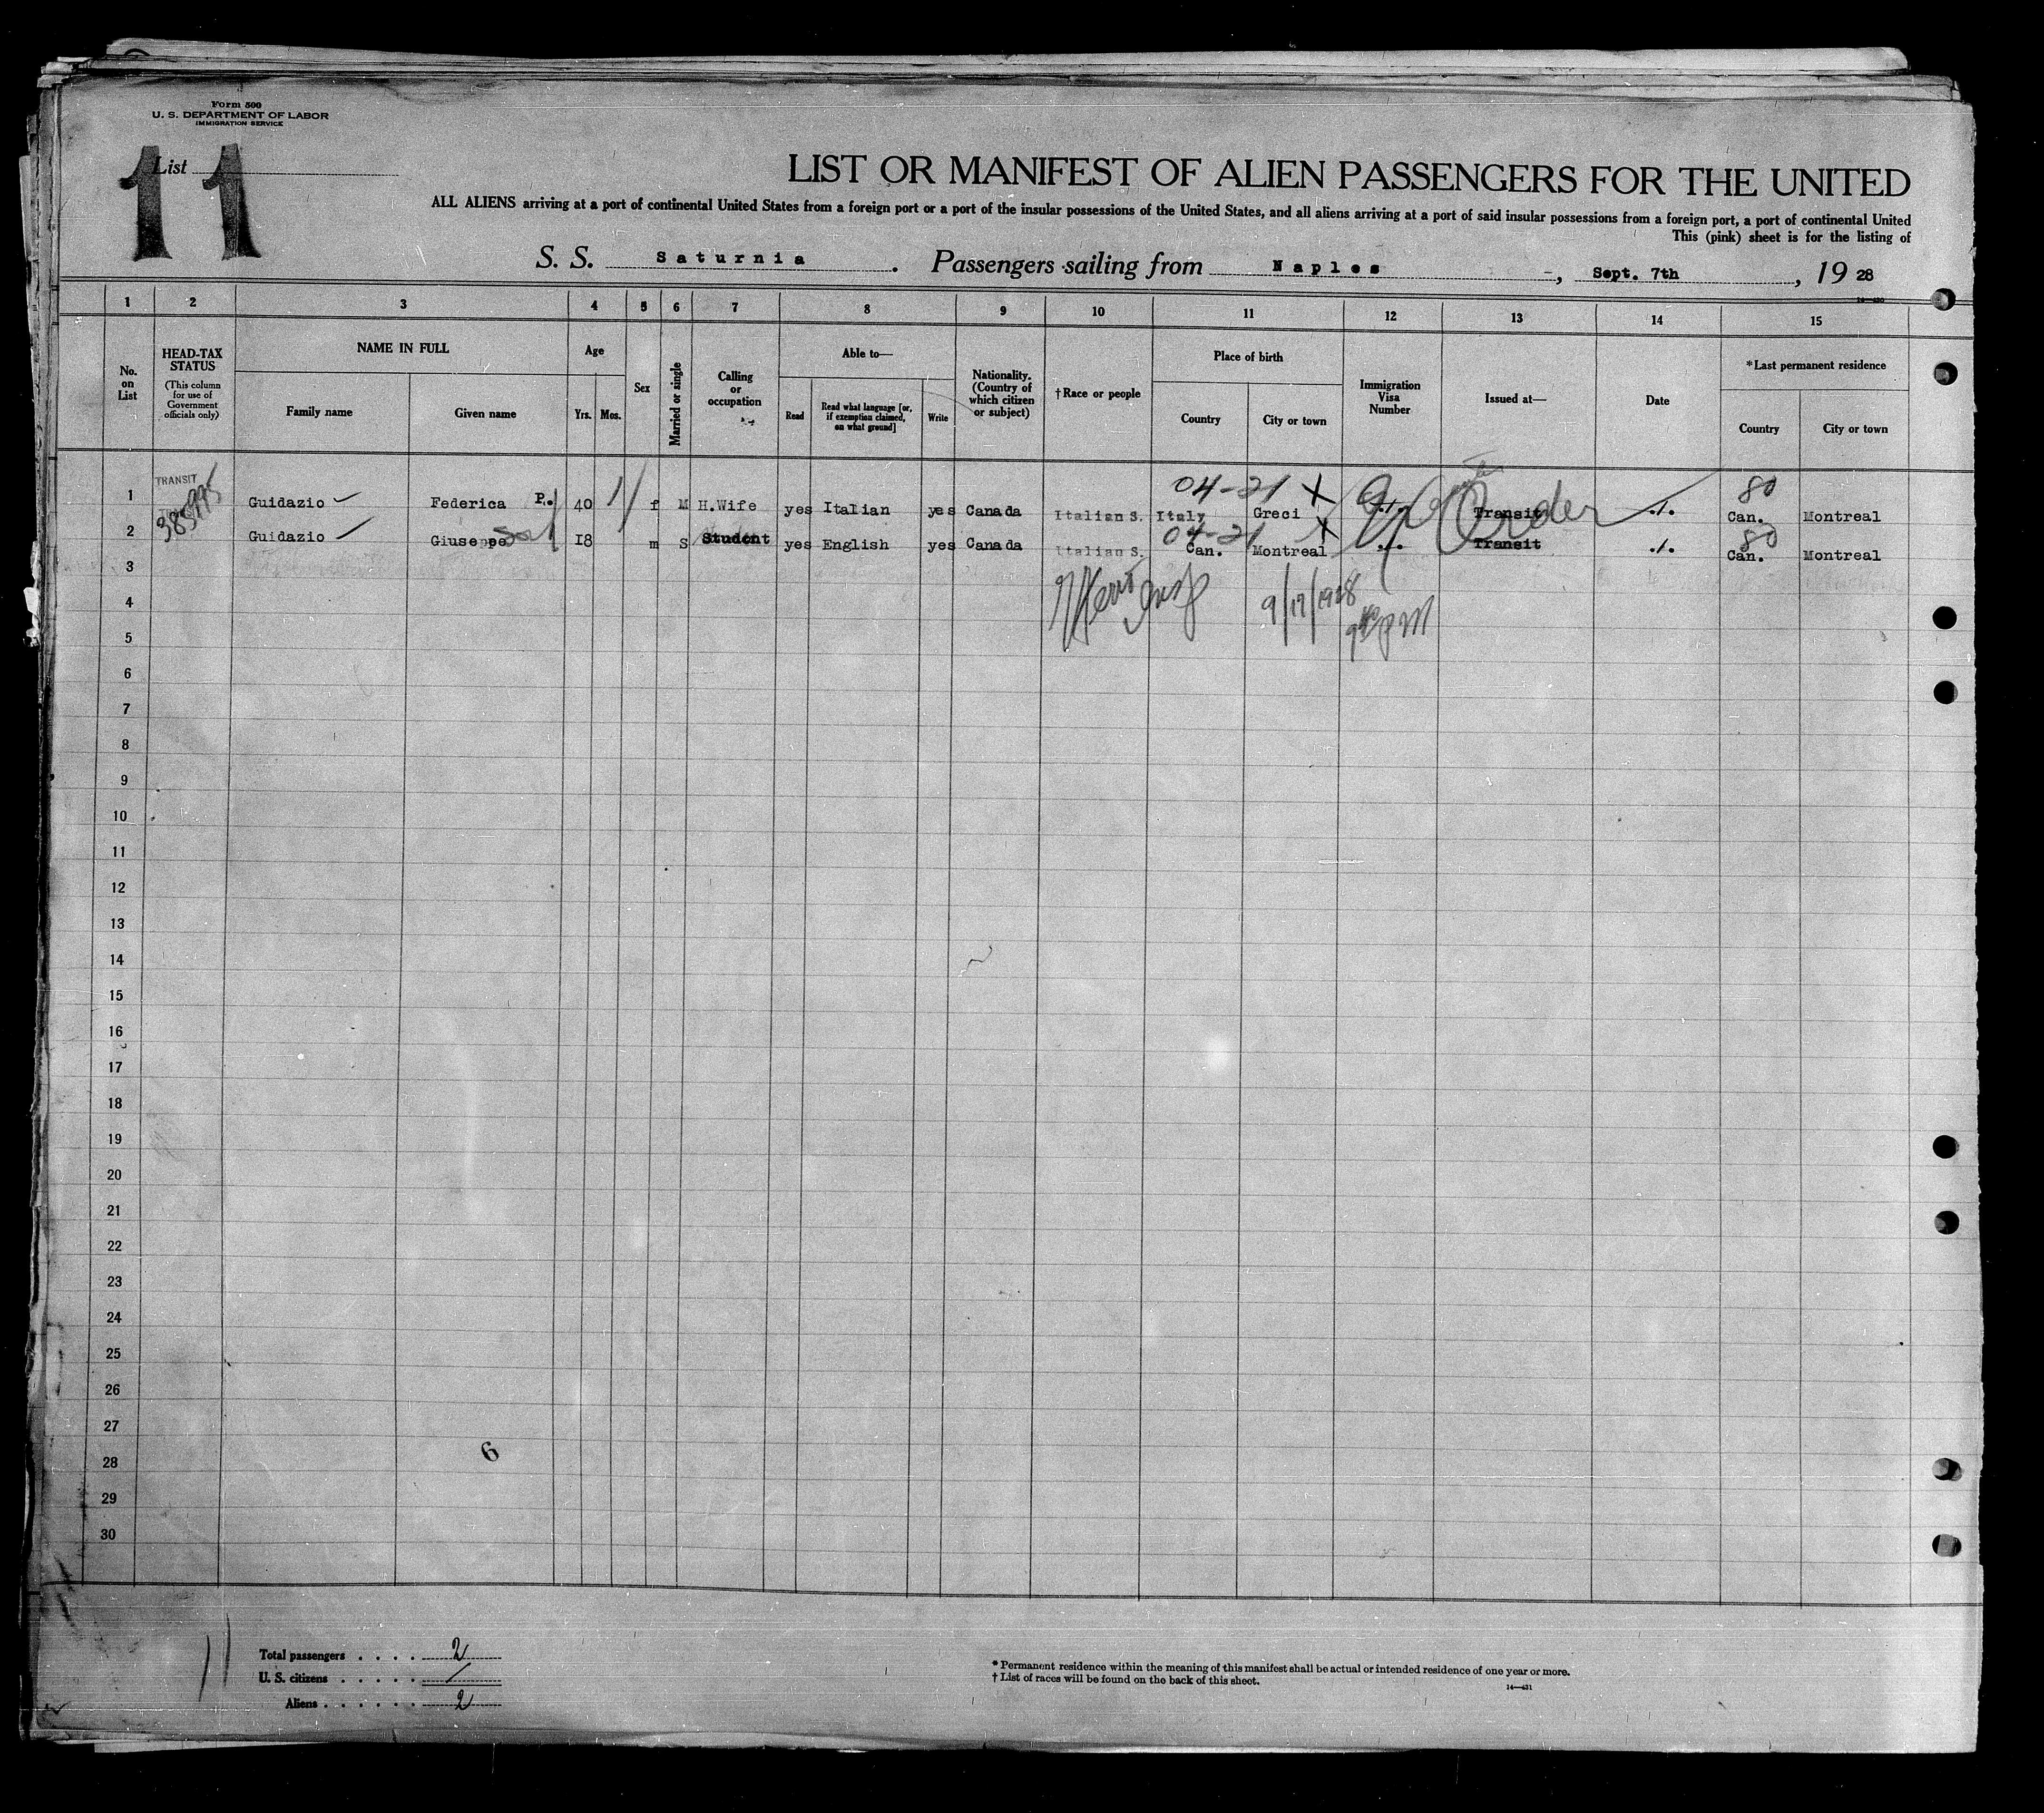 Form 500
U. S. DEPARTMENT OF LABOR
IMMIGRATION SERVICE
List
11
LIST OR MANIFEST OF ALIEN PASSENGERS FOR THE UNITED
ALL ALIENS arriving at a port of continental United States from a foreign port or a port of the insular possessions of the United States, and all aliens arriving at a port of said insular possessions from a foreign port, a port of continental United
This (pink) sheet is for the listing of
S. S. Saturnia. Passengers sailing from Naples, Sept. 7th, 19 28
1 2 3 4 5 6 7 8 9 10 11 12 13 14 15
No. on List
HEAD-TAX STATUS
(This column for use of Government officials only)
NAME IN FULL
Family name
Given name
Age
Yrs.
Mos.
Sex
Married or single
Calling or occupation
Able to—
Read
Read what language [or, if exemption claimed, on what ground]
Write
Nationality. (Country of which citizen or subject)
†Race or people
Place of birth
Country
City or town
Immigration Visa Number
Issued at—
Date
*Last permanent residence
Country
City or town
TRANSIT
04-21 X 80
1 Guidazio Federica P. 40 f M H.Wife yes Italian yes Canada Italian S. Italy Greci Transit Can. Montreal
Order
04-21 X 80
2 Guidazio Giuseppe 18 m S Student yes English yes Canada Italian S. Can. Montreal Transit Can. Montreal
3
4
9/17/1928
5
6
7
8
9
10
11
12
13
14
15
16
17
18
19
20
21
22
23
24
25
26
27
6
28
29
30
Total passengers . . . . 2
U. S. citizens . . . . . /
Aliens . . . . . . 2
11
* Permanent residence within the meaning of this manifest shall be actual or intended residence of one year or more.
† List of races will be found on the back of this sheet.
14—431